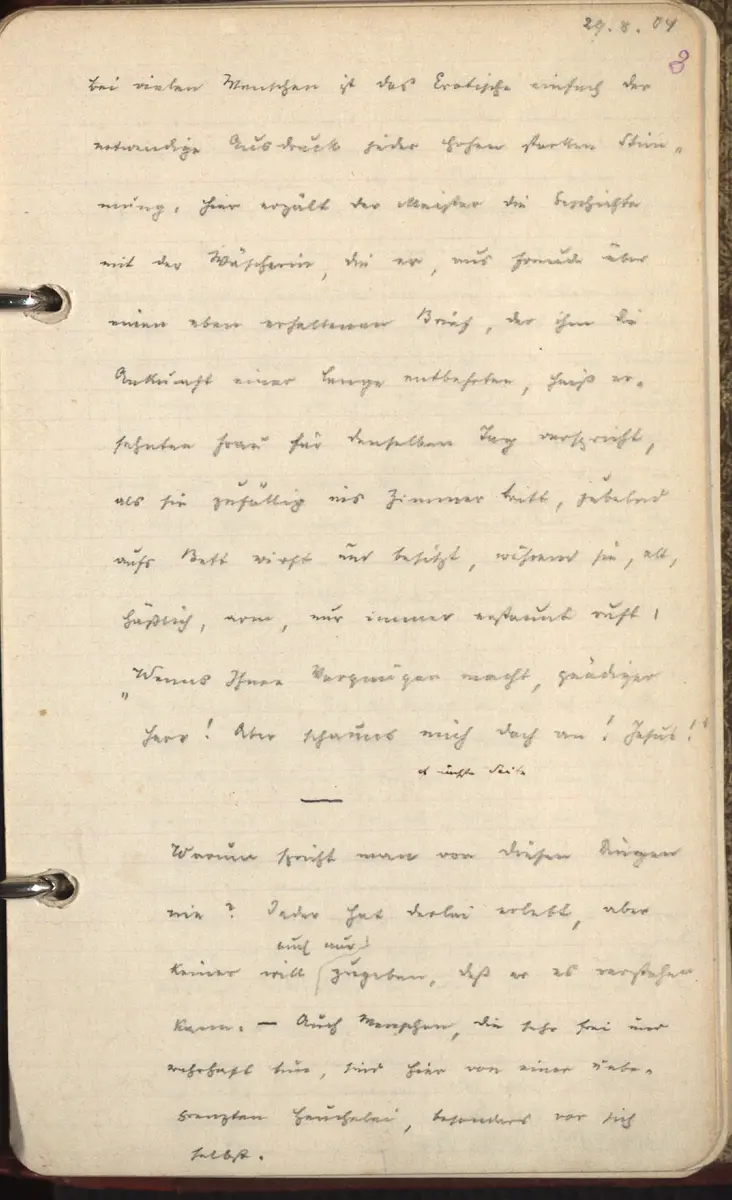 29.8.04
3
Bei vielen Menschen ist das Erotische einfach der
notwendige Ausdruck jeder hohen starken Stim-
mung. Hier erzält der Meister die Geschichte
mit der Wäscherin, die er, aus Freude über
einen eben erhaltenen Brief, der ihm die
Ankunft einer lange entbehrten, heiß er-
sehnten Frau für denselben Tag verspricht,
als sie zufällig ins Zimmer tritt, jubelnd
aufs Bett wirft und besitzt, während sie, alt,
häßlich, arm, nur immer erstaunt ruft:
„Wenns Ihnen Vergnügen macht, gnädiger
Herr! Aber schauns mich doch an! Jesus!“
cf nächste Seite
—
Warum spricht man von diesen Dingen
nie? Jeder hat derlei erlebt, aber
auch nur
keiner will zugeben, daß er es verstehen
kann. — Auch Menschen, die sehr frei und
wahrhaft tun, sind hier von einer unbe-
grenzten Heuchelei, besonders vor sich
selbst.